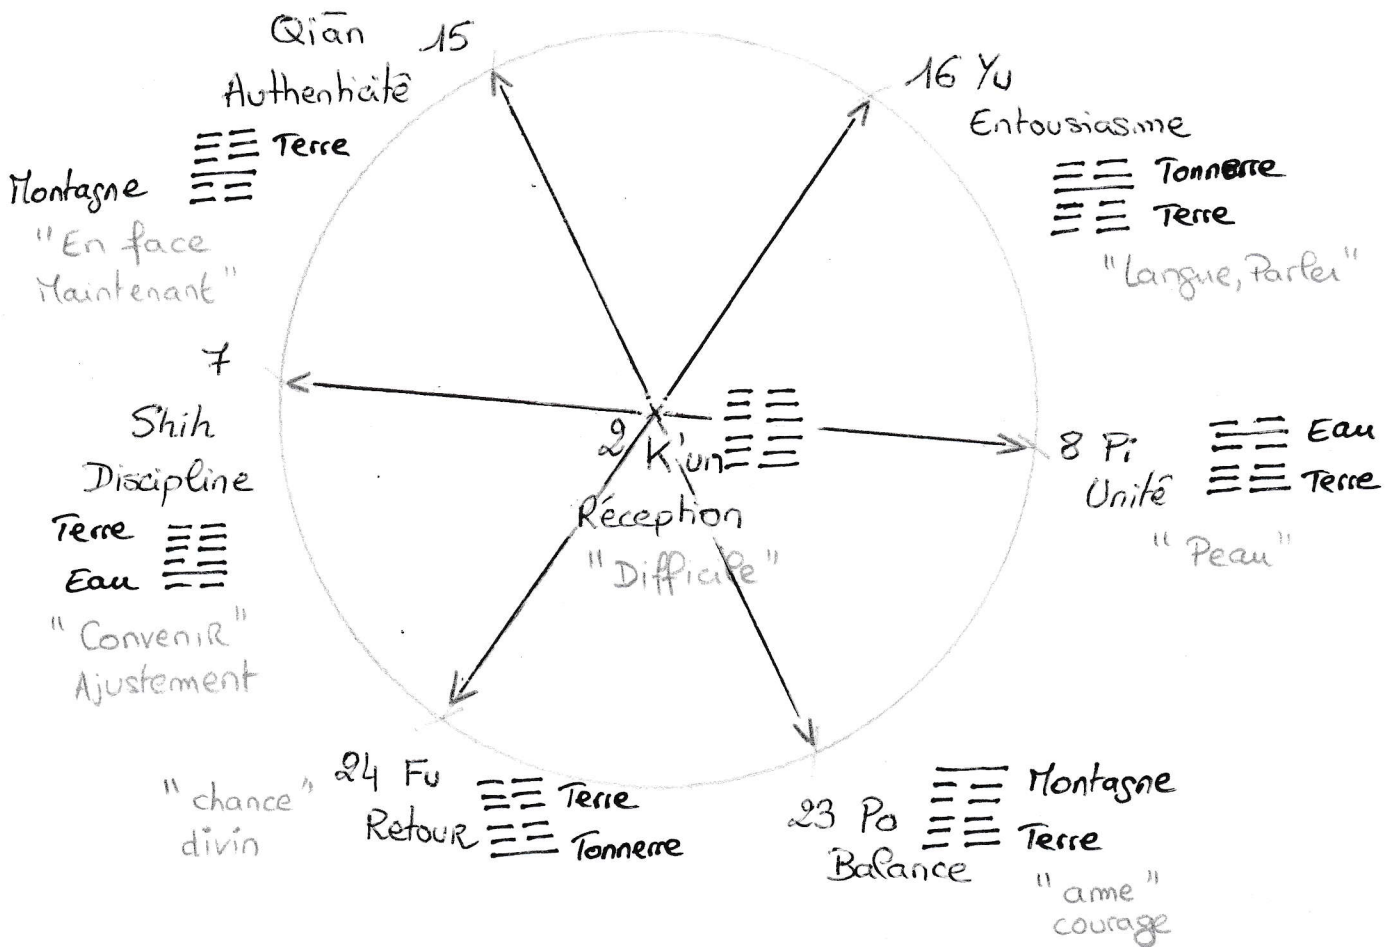 Qiān 15
Authenticité
Terre
Montagne
"En face
Maintenant"
16 Yu
Entousiasme
Tonnerre
Terre
"Langue, Parler"
7
Shih
Discipline
Terre
Eau
"Convenir"
Ajustement
2 K'un
Réception
"Difficile"
8 Pi
Unité
Eau
Terre
"Peau"
24 Fu
Retour
Terre
Tonnerre
"chance"
divin
23 Po
Balance
Montagne
Terre
"ame"
courage